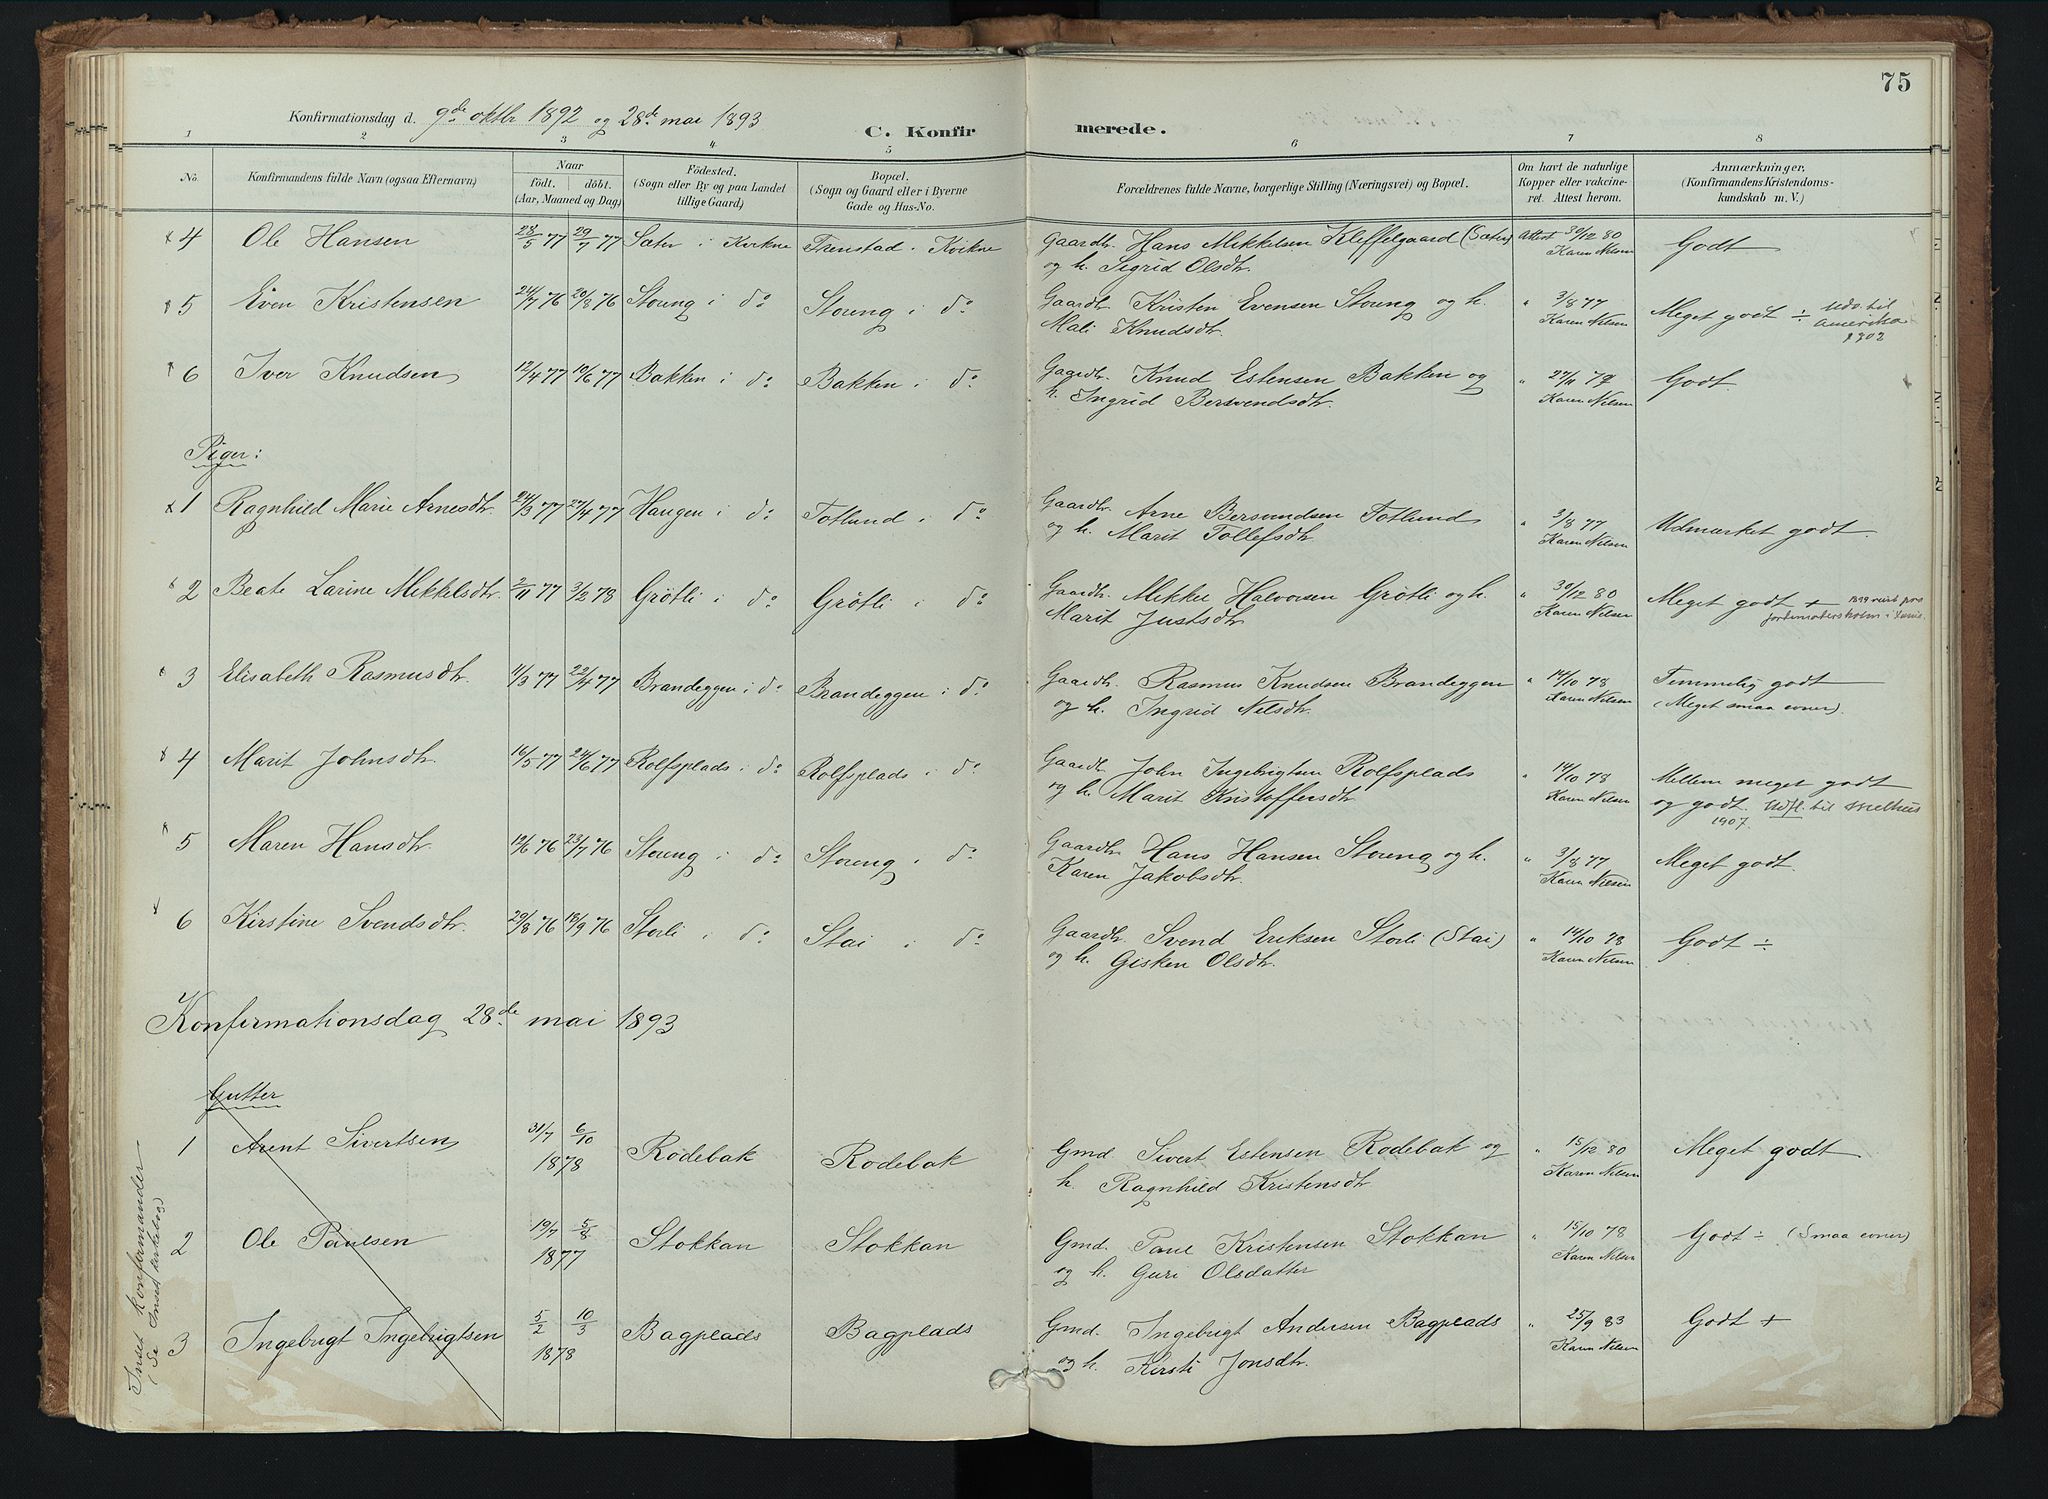 75
Konfirmationsdag d. 9de oktbr 1892 og 28de mai 1893
C. Konfir merede.
1 2 3 4 5 6 7 8
No. Konfirmandens fulde Navn (ogsaa Efternavn) Naar födt. döbt. (Aar, Maaned og Dag) Födested. (Sogn eller By og paa Landet tillige Gaard) Bopæl. (Sogn og Gaard eller i Byerne Gade og Hus-No. Forældrenes fulde Navne, borgerlige Stilling (Næringsvei) og Bopæl. Om havt de naturlige Kopper eller vakcineret. Attest herom. Anmærkninger, (Konfirmandens Kristendomskundskab m. V.)
4 Ole Hansen 28/5 77 29/7 77 Sæter i Kvikne Frenstad i Kvikne Gaardbr. Hans Mikkelsen Kleffelgaard (Sæter) Attest 30/12 80 Godt
og h. Sigrid Olsdtr. Karen Nilsen
5 Even Kristensen 24/7 76 20/8 76 Storeng i do Storeng i do Gaardbr. Kristen Evensen Storeng og h. " 3/8 77 Meget godt ÷ Udv. til
Mali Knudsdtr. Karen Nilsen Amerika
1902
6 Iver Knudsen 12/4 77 10/6 77 Bakken i do Bakken i do Gaardbr. Knud Estensen Bakken og " 27/11 79 Godt.
h. Ingrid Bersvendsdtr. Karen Nilsen
Piger:
1 Ragnhild Marie Arnesdtr. 24/3 77 27/4 77 Haugen i do Totlund i do Gaardbr. Arne Bersvendsen Totlund " 3/8 77 Udmærket godt.
og h. Marit Tollefsdtr Karen Nilsen
2 Beate Larine Mikkelsdtr. 2/11 77 3/2 78 Grötli i do Grötli i do Gaardbr. Mikkel Halvorsen Grötli og h. " 30/12 80 Meget godt + 1899
Marit Justsdtr Karen Nilsen
3 Elisabeth Rasmusdtr. 11/3 77 22/4 77 Brandeggen i do Brandeggen i do Gaardbr. Rasmus Knudsen Brandeggen " 14/10 78 Temmelig godt
og h. Ingrid Nilsdtr. Karen Nilsen (Meget smaa evner).
4 Marit Johnsdtr. 16/5 77 24/6 77 Rolfsplads i do Rolfsplads i do Gaardbr. John Ingebrigtsen Rolfsplads " 14/10 78 Mellem meget godt
og h. Marit Kristoffersdtr Karen Nilsen og godt. Udfl. til Melhus
1907.
5 Maren Hansdtr. 19/6 76 23/7 76 Storeng i do Storeng i do Gaardbr. Hans Hansen Storeng og h. " 3/8 77 Meget godt.
Karen Jakobsdtr. Karen Nilsen
6 Kirstine Svendsdtr. 29/8 76 18/9 76 Storli i do Stai i do Gaardbr. Svend Eriksen Storli (Stai) " 14/10 78 Godt ÷
og h. Gisken Olsdtr. Karen Nilsen
Konfirmationsdag 28de mai 1893
Gutter
1 Arent Sivertsen 31/7 6/10 1878 Rödebak Rödebak Gmd. Sivert Estensen Rödebak og " 15/12 80 Meget godt
h. Ragnhild Kristensdtr Karen Nilsen
2 Ole Paulsen 19/7 5/8 1877 Stokkan Stokkan Gmd. Paul Kristensen Stokkan " 15/10 78 Godt ÷ (Smaa evner)
og h. Guri Olsdatter Karen Nilsen
3 Ingebrigt Ingebrigtsen 5/2 10/3 1878 Bagplads Bagplads Gmd. Ingebrigt Andersen Bagplads " 25/9 83 Godt +
og h. Kirsti Jonsdtr. Karen Nilsen
Inset konfirmander
(Se Inset kirkebog)